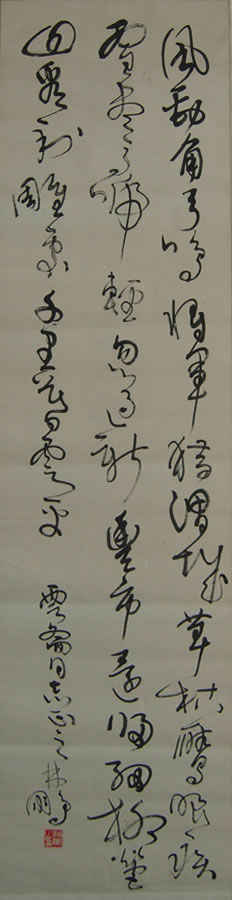 風勁角弓鳴將軍獵渭城草枯鷹眼疾
雪盡馬蹄輕忽過新豐市還歸細柳營
回看射雕處千里暮雲平
同志正之 林鵬